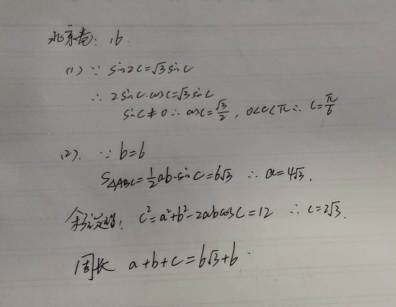 北京卷: 16
(1) ∵ sin2C=√3sinC
∴ 2sinC·cosC=√3sinC
sinC≠0 ∴ cosC=√3/2, 0<C<π ∴ C=π/6
(2). ∵ b=6
S△ABC=1/2ab·sinC=6√3 ∴ a=4√3.
余弦定理: c²=a²+b²-2abcosC=12 ∴ c=2√3.
周长 a+b+c=6√3+6.